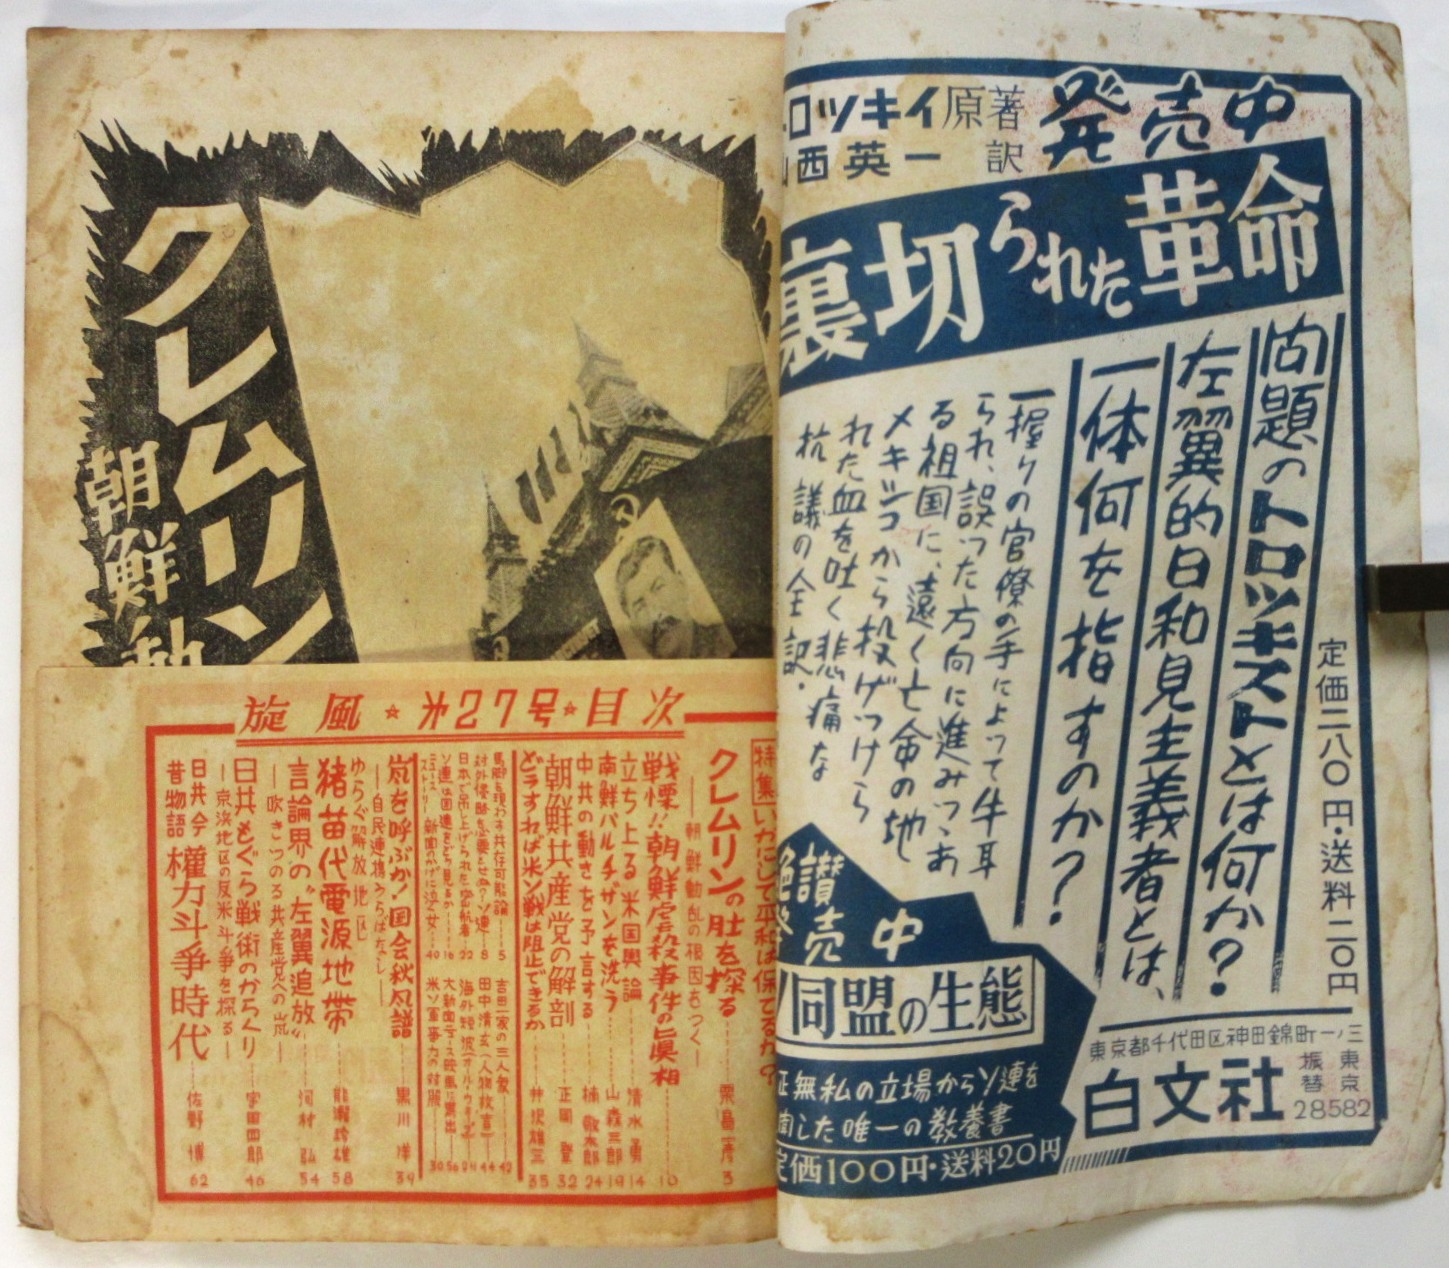 ロツキイ原著
西英一 訳
発売中
裏切られた革命
問題のトロツキストとは何か?
左翼的日和見主義者とは、
一体何を指すのか?
一握りの官僚の手によって牛耳
られ、誤った方向に進みつゝあ
る祖国に、遠く亡命の地
メキシコから投げつけら
れた血を吐く悲痛な
抗議の全訳.
定価二八〇円・送料二〇円
絶讃
発売中
ソ同盟の生態
正無私の立場からソ連を
した唯一の教養書
定価100円・送料20円
東京都千代田区神田錦町一ノ三
白文社
振替
東京
28582
クレムリン
朝鮮動
旋風☆第27号☆目次
特集 いかにして平和は保てるか?
クレムリンの肚を探る
―朝鮮動乱の禍因をつく― 3
戦慄!!朝鮮虐殺事件の眞相 10
立ち上る米国輿論 清水勇 14
南鮮パルチザンを洗う 山森三郎 19
中共の動きを予言する 楠敬太郎 24
朝鮮共産党の解剖 正岡登 32
どうすれば米ソ戦は阻止できるか 井沢雄三 35
馬脚を現わす共存可能論 5
8
日本で吊し上げられた 22
ソ連は国連をどう見るか 16
ニュース・ストーリー 新聞のかげに泣く女 40
吉田一家の三人衆 42
田中清玄(人物放言) 44
海外短波(オール・ウォーズ)
米ソ軍事力の対照 30
嵐を呼ぶか!国会秋風譜
―自民連携うらばなし― 黒川洋 39
ゆらぐ「解放地区」
猪苗代電源地帯 58
言論界の“左翼追放”
―吹きつのる共産党への嵐― 河村弘 54
日共もぐら戦術のからくり
―京浜地区の反米斗争を探る― 富田四郎 46
日共今昔物語 權力斗争時代 佐野博 62